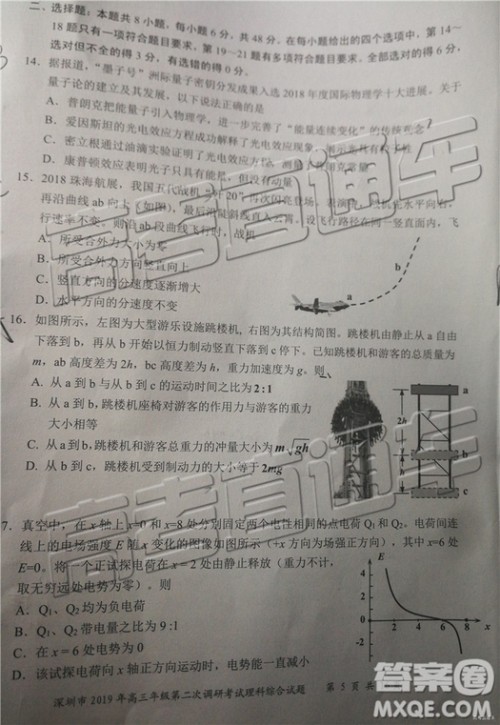 二、选择题：本题共 8 小题，每小题 6 分，共 48 分。在每小题给出的四个选项中，第 14～
18 题只有一项符合题目要求，第 19～21 题有多项符合题目要求。全部选对的得 6 分，
选对但不全的得 3 分，有选错的得 0 分。
14．据报道，“墨子号”洲际量子密钥分发成果入选 2018 年度国际物理学十大进展，关于
量子论的建立及其发展，以下说法正确的是
A．普朗克把能量子引入物理学，进一步完善了“能量连续变化”的传统观念
B．爱因斯坦的光电效应方程成功解释了光电效应现象，揭示光具有粒子性
C．密立根通过油滴实验证明了光电效应方程，测量出
D．康普顿效应表明光子只具有能量，但没有动量
15．2018 珠海航展，我国五代战机“歼 20”再次闪亮登场。表演中，战机先水平向右，
再沿曲线 ab 向上（如图），最后沿陡斜线直入云霄。设飞行路径在同一竖直面内，飞
行速率不变。则沿 ab 段曲线飞行时，战机
A．所受合外力大小为零
B．所受合外力方向竖直向上
C．竖直方向的分速度逐渐增大
D．水平方向的分速度不变
a
b
16．如图所示，左图为大型游乐设施跳楼机，右图为其结构简图。跳楼机由静止从 a 自由
下落到 b，再从 b 开始以恒力制动竖直下落到 c 停下。已知跳楼机和游客的总质量为
m，ab 高度差为 2h，bc 高度差为 h，重力加速度为 g。则
A．从 a 到 b 与从 b 到 c 的运动时间之比为 2 : 1
B．从 a 到 b，跳楼机座椅对游客的作用力与游客的重力
大小相等
C．从 a 到 b，跳楼机和游客总重力的冲量大小为 m√gh
D．从 b 到 c，跳楼机受到制动力的大小等于 2mg
a
2h
b
h
c
7．真空中，在 x 轴上 x=0 和 x=8 处分别固定两个电性相同的点电荷 Q1 和 Q2。电荷间连
线上的电场强度 E 随 x 变化的图像如图所示（+x 方向为场强正方向），其中 x=6 处
E=0。将一个正试探电荷在 x = 2 处由静止释放（重力不计，
取无穷远处电势为零）。则
A．Q1、Q2 均为负电荷
B．Q1、Q2 带电量之比为 9 :1
C．在 x = 6 处电势为 0
D．该试探电荷向 x 轴正方向运动时，电势能一直减小
E
4
2
0
-2
-4
2 4 6 8 x
深圳市 2019 年高三年级第二次调研考试理科综合试题 第 5 页 共
高考直通车
高考直通车
答案圈